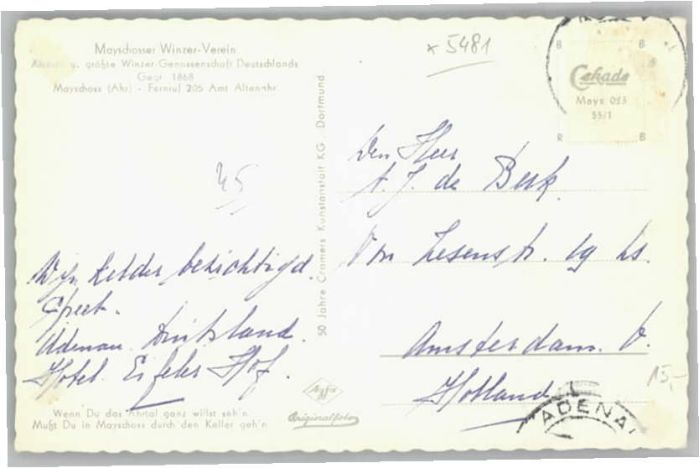 Mayschosser Winzer-Verein
Älteste u. größte Winzer-Genossenschaft Deutschlands
Gegr. 1868
Mayschoss (Ahr) - Fernruf 205 Amt Altenahr.
* 5481
B B
Cekade
Mays 023
55/1
R B
45
50 Jahre Cramers Kunstanstalt KG. Dortmund
Den Heer
A. J. de Berk.
Von 19 hs.
Amsterdam. O.
Holland
Wijn kelder bezichtigd.
Groet.
Adenau. Duitsland.
Hotel. Eifeler Hof.
15,-
ADENAU
Agfa
Originalfoto
Wenn Du das Ahrtal ganz willst seh'n
Mußt Du in Mayschoss durch den Keller geh'n